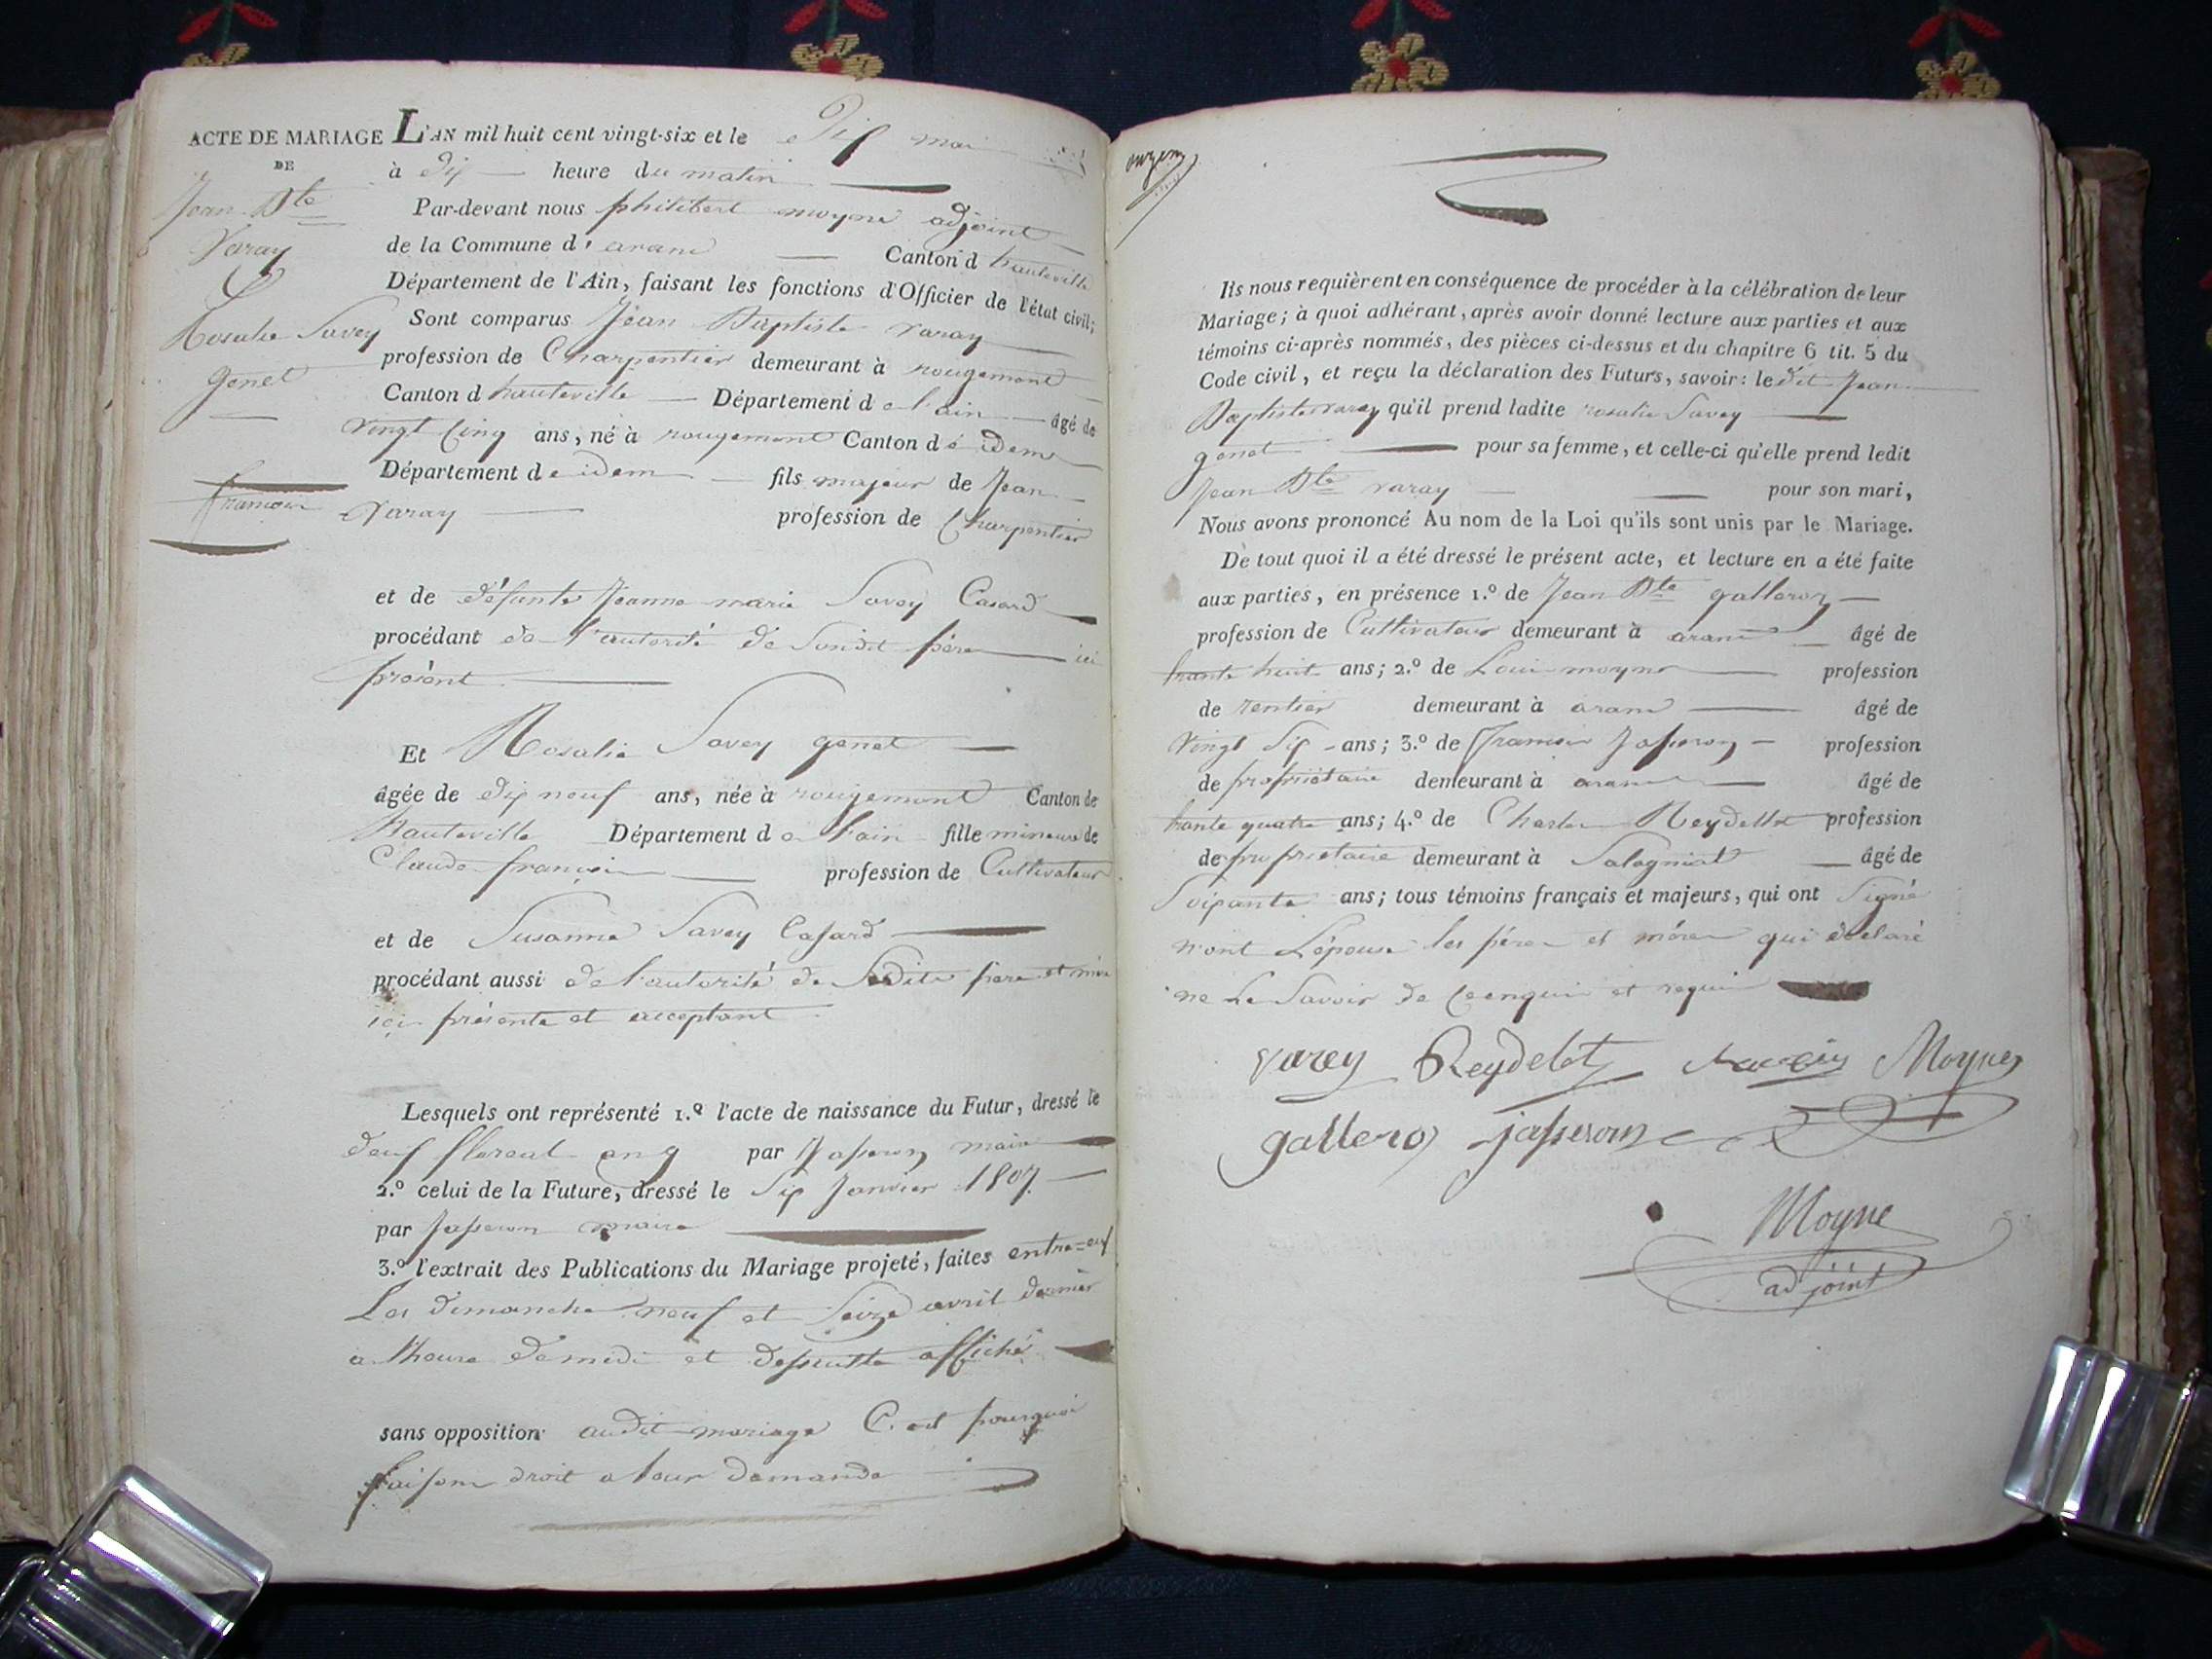 ACTE DE MARIAGE
DE
Jean Bte
Varay
&
Rosalie Savey
genet
francoin
L'AN mil huit cent vingt-six et le Dix mai
à dix heure du matin
Par-devant nous philibert moyne adjoint
de la Commune d'aranc Canton d hauteville
Département de l'Ain, faisant les fonctions d'Officier de l'état civil;
Sont comparus Jean Baptiste varay
profession de Charpentier demeurant à rougemont
Canton d hauteville Département d e l'ain âgé de
vingt Cinq ans, né à rougemont Canton d e idem
Département d e idem fils majeur de Jean
Varay profession de Charpentier
et de défunte Jeanne marie Savey Casard
procédant de l'autorité de Sondit père ici
présent
Et Rosalie Savey genet
âgée de dix neuf ans, née à rougemont Canton de
hauteville Département d e l'ain fille mineure de
Claude françois profession de Cultivateur
et de Susanne Savey Casard
procédant aussi de l'autorité de Sedits père et mère
ici présente et acceptant
Lesquels ont représenté 1.º l'acte de naissance du Futur, dressé le
deux floreal an 9 par Japeron maire
2.º celui de la Future, dressé le Six Janvier 1807
par Japeron maire
3.º l'extrait des Publications du Mariage projeté, faites entre=eux
Les dimanche neuf et Seize avril dernier
a l'heure de midi et dessuitte affiché
sans opposition audit mariage C. est pourquoi
faisom droit a leur demande
Ils nous requièrent en conséquence de procéder à la célébration de leur
Mariage; à quoi adhérant, après avoir donné lecture aux parties et aux
témoins ci-après nommés, des pièces ci-dessus et du chapitre 6 tit. 5 du
Code civil, et reçu la déclaration des Futurs, savoir: le dit Jean
Baptiste varay qu'il prend ladite rosalie Savey
genet pour sa femme, et celle-ci qu'elle prend ledit
Jean Bte varay pour son mari,
Nous avons prononcé Au nom de la Loi qu'ils sont unis par le Mariage.
De tout quoi il a été dressé le présent acte, et lecture en a été faite
aux parties, en présence 1.º de Jean Bte galleron
profession de Cultivateur demeurant à aranc âgé de
trante huit ans; 2.º de Loui moyne profession
de rentier demeurant à aranc âgé de
vingt Six ans; 3.º de francoi Japeron profession
de propriétaire demeurant à aranc âgé de
trante quatre ans; 4.º de Charle Reydellet profession
de propriétaire demeurant à Salagniat âgé de
Soixante ans; tous témoins français et majeurs, qui ont Signé
n'ont L'épouse les père et mère qui déclaré
ne Le Savoir de Ceenquui et requui
varey Reydelet Moyne
gallero japeron
Moyne
adjoint